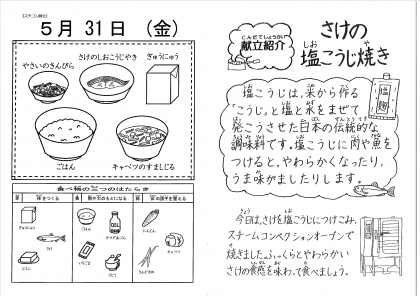 5月31日（金）
やさいのきんぴら
さけのしおこうじやき
ぎゅうにゅう
ごはん
キャベツのすましじる
食べ物の三つのはたらき
ごはん
にんじん
キャベツ
さけ
とうふ
さとう
献立紹介
さけの
塩こうじ焼き
塩こうじは、米から作る
「こうじ」と塩と水をまぜて
発こうさせた日本の伝統的な
調味料です。塩こうじに肉や魚を
つけると、やわらかくなったり、
うま味がましたりします。
塩麹
今日は、さけを塩こうじにつけこみ、
スチームコンベクションオーブンで
焼きました。ふっくらとやわらかい
さけの食感を味わって食べましょう。